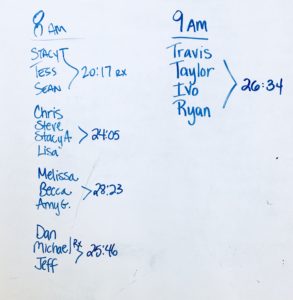 8 AM
STACY T
TESS
SEAN
20:17 RX
Chris
Steve
Stacy A.
Lisa
24:05
Melissa
Becca
Amy G.
28:23
Dan
Michael RX
Jeff
25:46
9 AM
Travis
Taylor
Ivo
Ryan
26:34